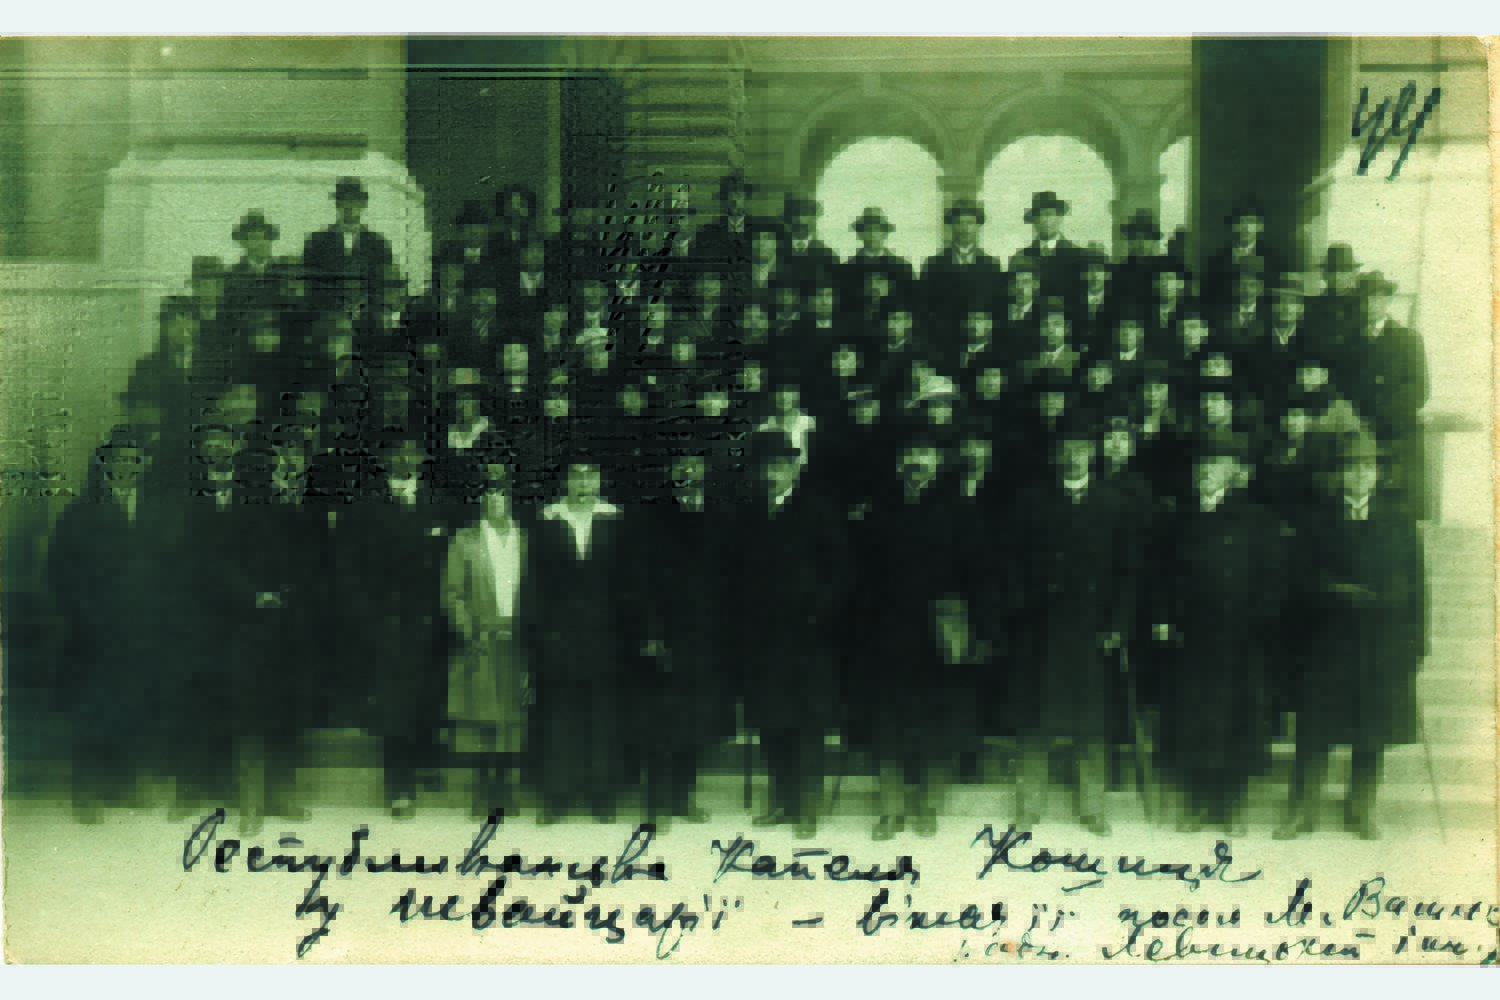 Републиканська Капеля Кошиця
у Швайцарії – вітає її посол М. Васил
Левицький і ин.